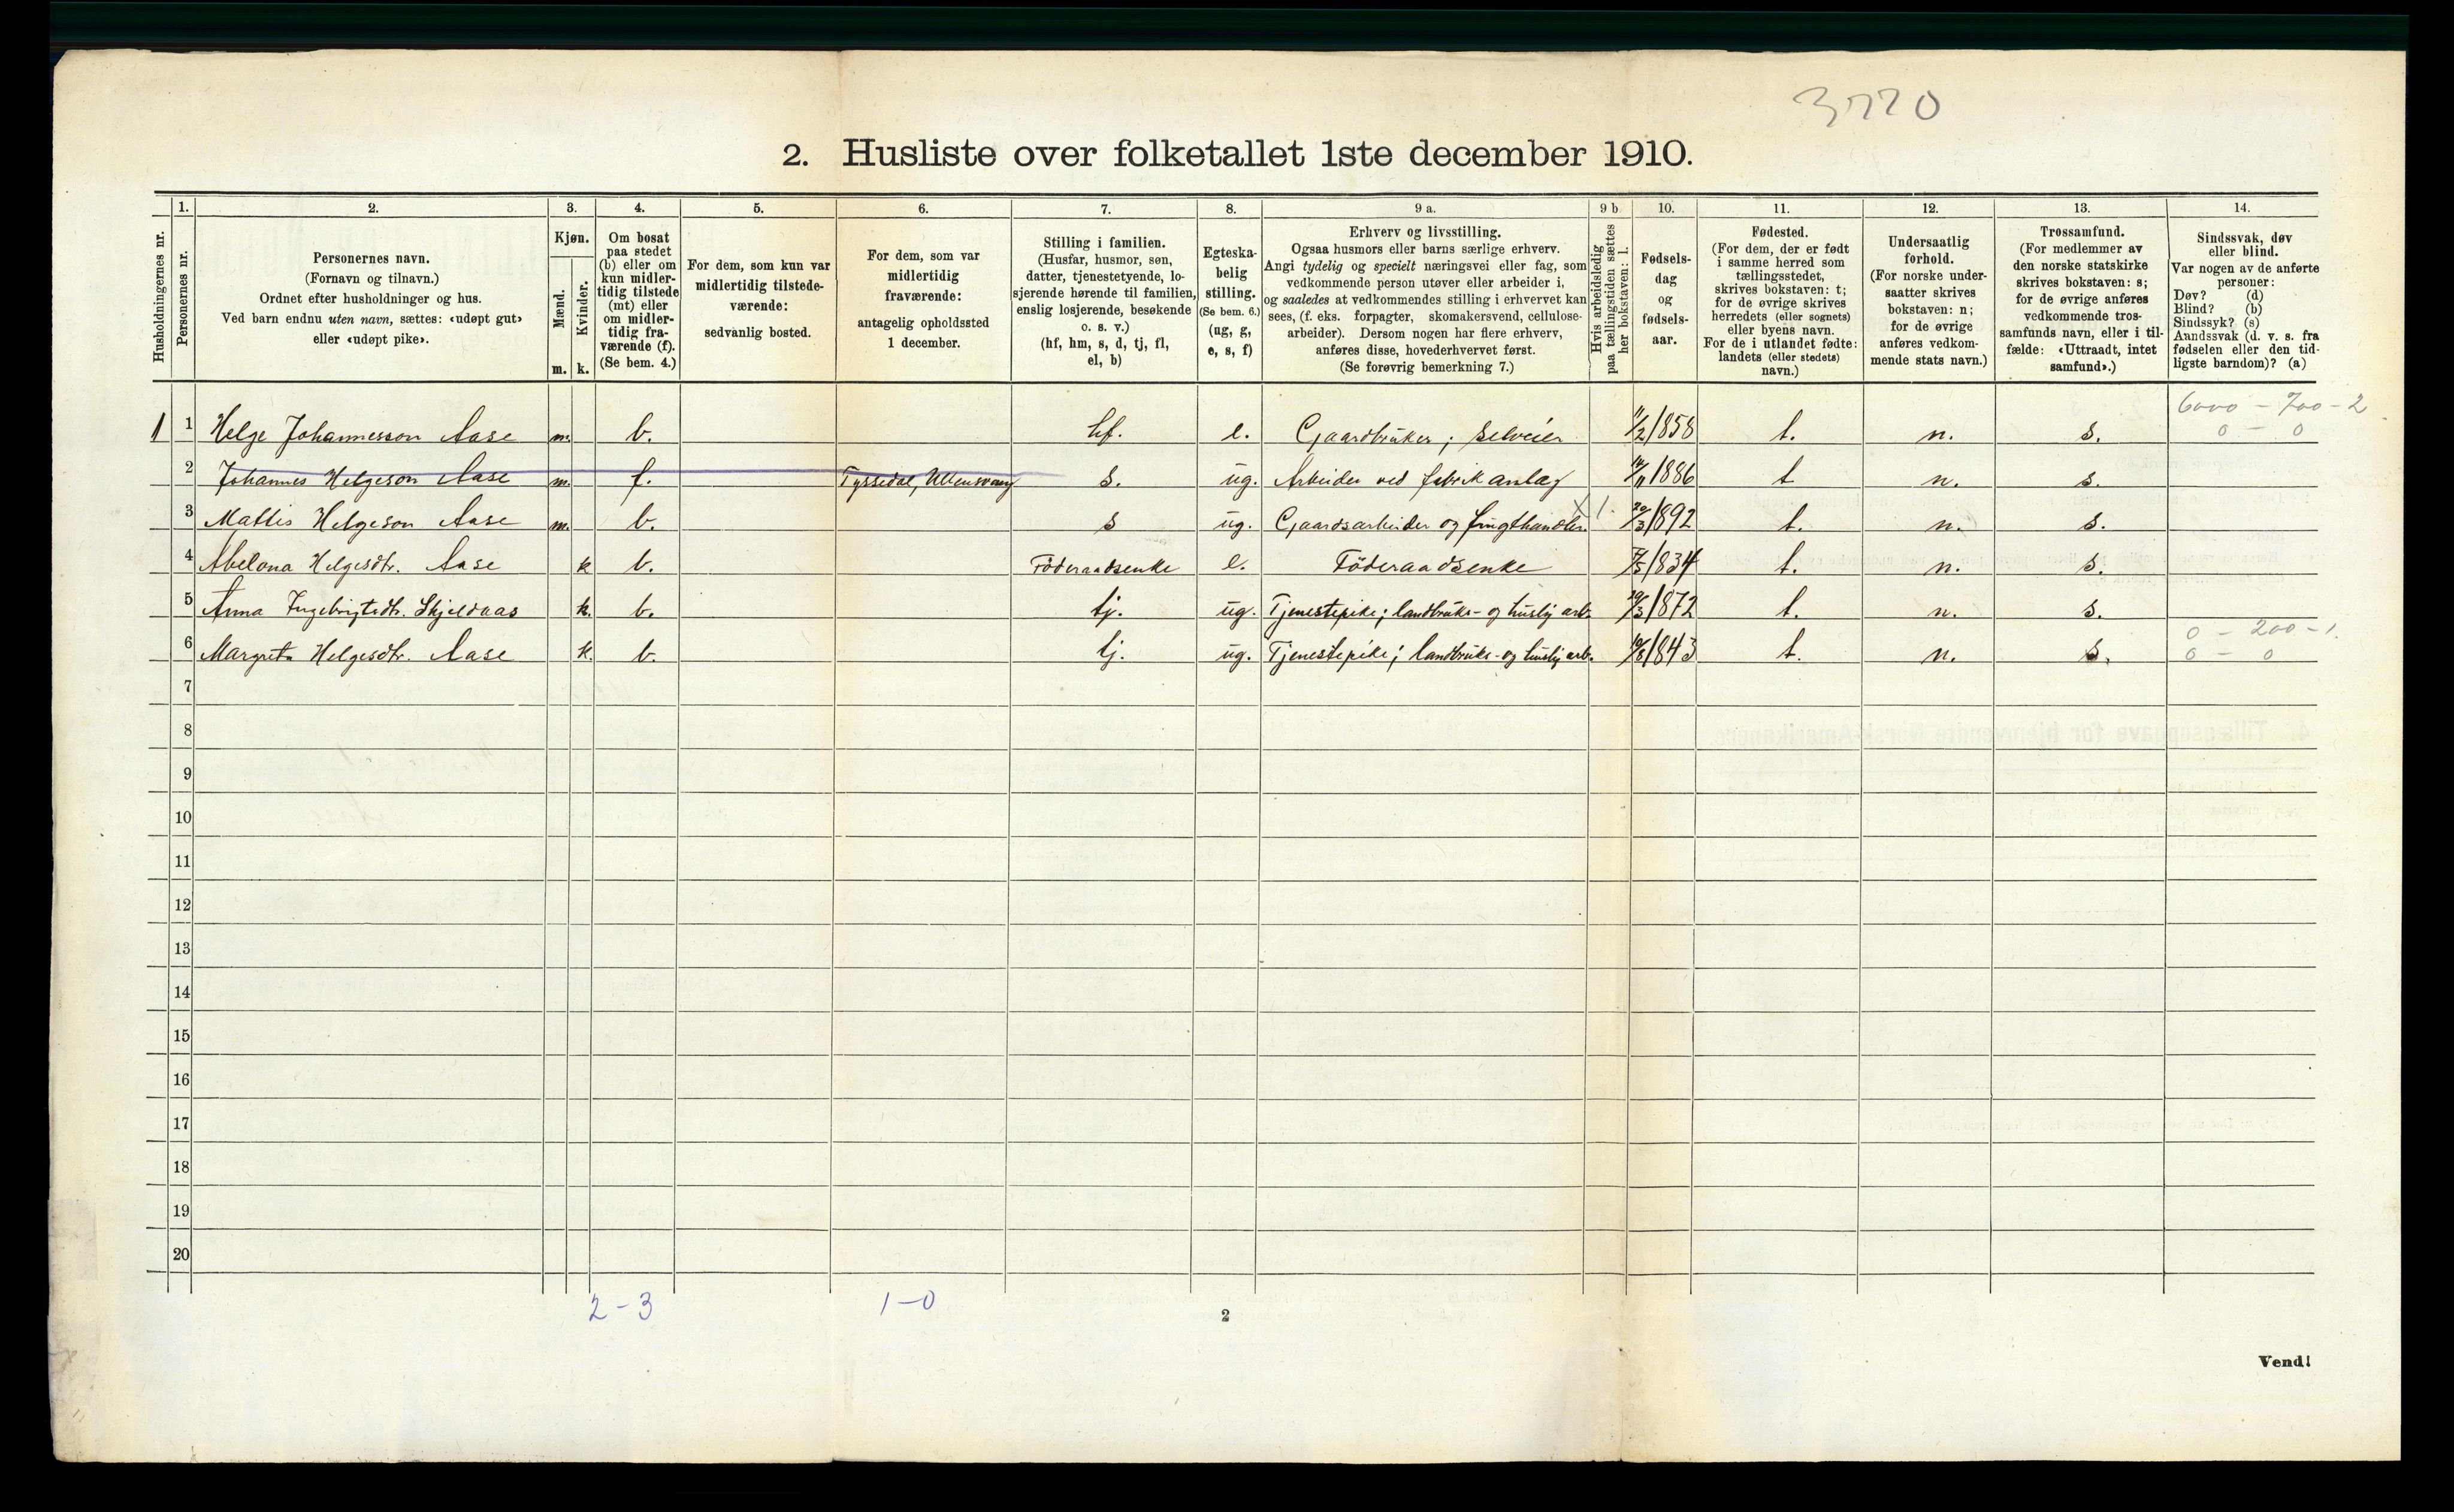 3770
2. Husliste over folketallet 1ste december 1910.
Husholdningernes nr.
1.
Personernes nr.
2.
Personernes navn.
(Fornavn og tilnavn.)
Ordnet efter husholdninger og hus.
Ved barn endnu uten navn, sættes: «udøpt gut»
eller «udøpt pike».
3.
Kjøn.
Mænd.
Kvinder.
m. k.
4.
Om bosat
paa stedet
(b) eller om
kun midler-
tidig tilstede
(mt) eller
om midler-
tidig fra-
værende (f).
(Se bem. 4.)
5.
For dem, som kun var
midlertidig tilstede-
værende:
sedvanlig bosted.
6.
For dem, som var
midlertidig
fraværende:
antagelig opholdssted
1 december.
7.
Stilling i familien.
(Husfar, husmor, søn,
datter, tjenestetyende, lo-
sjerende hørende til familien,
enslig losjerende, besøkende
o. s. v.)
(hf, hm, s, d, tj, fl,
el, b)
8.
Egteska-
belig
stilling.
(Se bem. 6.)
(ug, g,
e, s, f)
9 a.
Erhverv og livsstilling.
Ogsaa husmors eller barns særlige erhverv.
Angi tydelig og specielt næringsvei eller fag, som
vedkommende person utøver eller arbeider i,
og saaledes at vedkommendes stilling i erhvervet kan
sees, (f. eks. forpagter, skomakersvend, cellulose-
arbeider). Dersom nogen har flere erhverv,
anføres disse, hovederhvervet først.
(Se forøvrig bemerkning 7.)
9 b
Hvis arbeidsledig
paa tællingstiden sættes
her bokstaven: l.
10.
Fødsels-
dag
og
fødsels-
aar.
11.
Fødested.
(For dem, der er født
i samme herred som
tællingsstedet,
skrives bokstaven: t;
for de øvrige skrives
herredets (eller sognets)
eller byens navn.
For de i utlandet fødte:
landets (eller stedets)
navn.)
12.
Undersaatlig
forhold.
(For norske under-
saatter skrives
bokstaven: n;
for de øvrige
anføres vedkom-
mende stats navn.)
13.
Trossamfund.
(For medlemmer av
den norske statskirke
skrives bokstaven: s;
for de øvrige anføres
vedkommende tros-
samfunds navn, eller i til-
fælde: «Uttraadt, intet
samfund».)
14.
Sindssvak, døv
eller blind.
Var nogen av de anførte
personer:
Døv? (d)
Blind? (b)
Sindssyk? (s)
Aandssvak (d. v. s. fra
fødselen eller den tid-
ligste barndom)? (a)
6000 - 700 - 2
1 1 Helge Johannesson Aase m. b. hf. e. Gaardbruker; selveier 11/2 1858 t. n. s. 0 - 0
2 Johannes Helgeson Aase m. f. Tyssedal, Ullensvang s. ug. Arbeider ved fabrikanlæg 14/11 1886 t n. s.
3 Mattis Helgeson Aase m. b. s ug. Gaardsarbeider og frugthandler X 1. 20/3 1892 t. n. s.
4 Abelona Helgesdtr. Aase k b. Föderaadsenke e. Föderaadsenke 7/5 1834 t. n. s.
5 Anna Ingebrigtsdtr. Skjeldaas k. b. tj. ug. Tjenestepike; landbruks- og huslig arb. 29/3 1872 t. n. s.
0 - 200 - 1.
6 Margreta Helgesdtr. Aase k. b. tj. ug. Tjenestepike; landbruks- og huslig arb. 10/8 1843 t. n. s. 0 - 0
7
8
9
10
11
12
13
14
15
16
17
18
19
20
2 - 3 1 - 0
2
Vend!